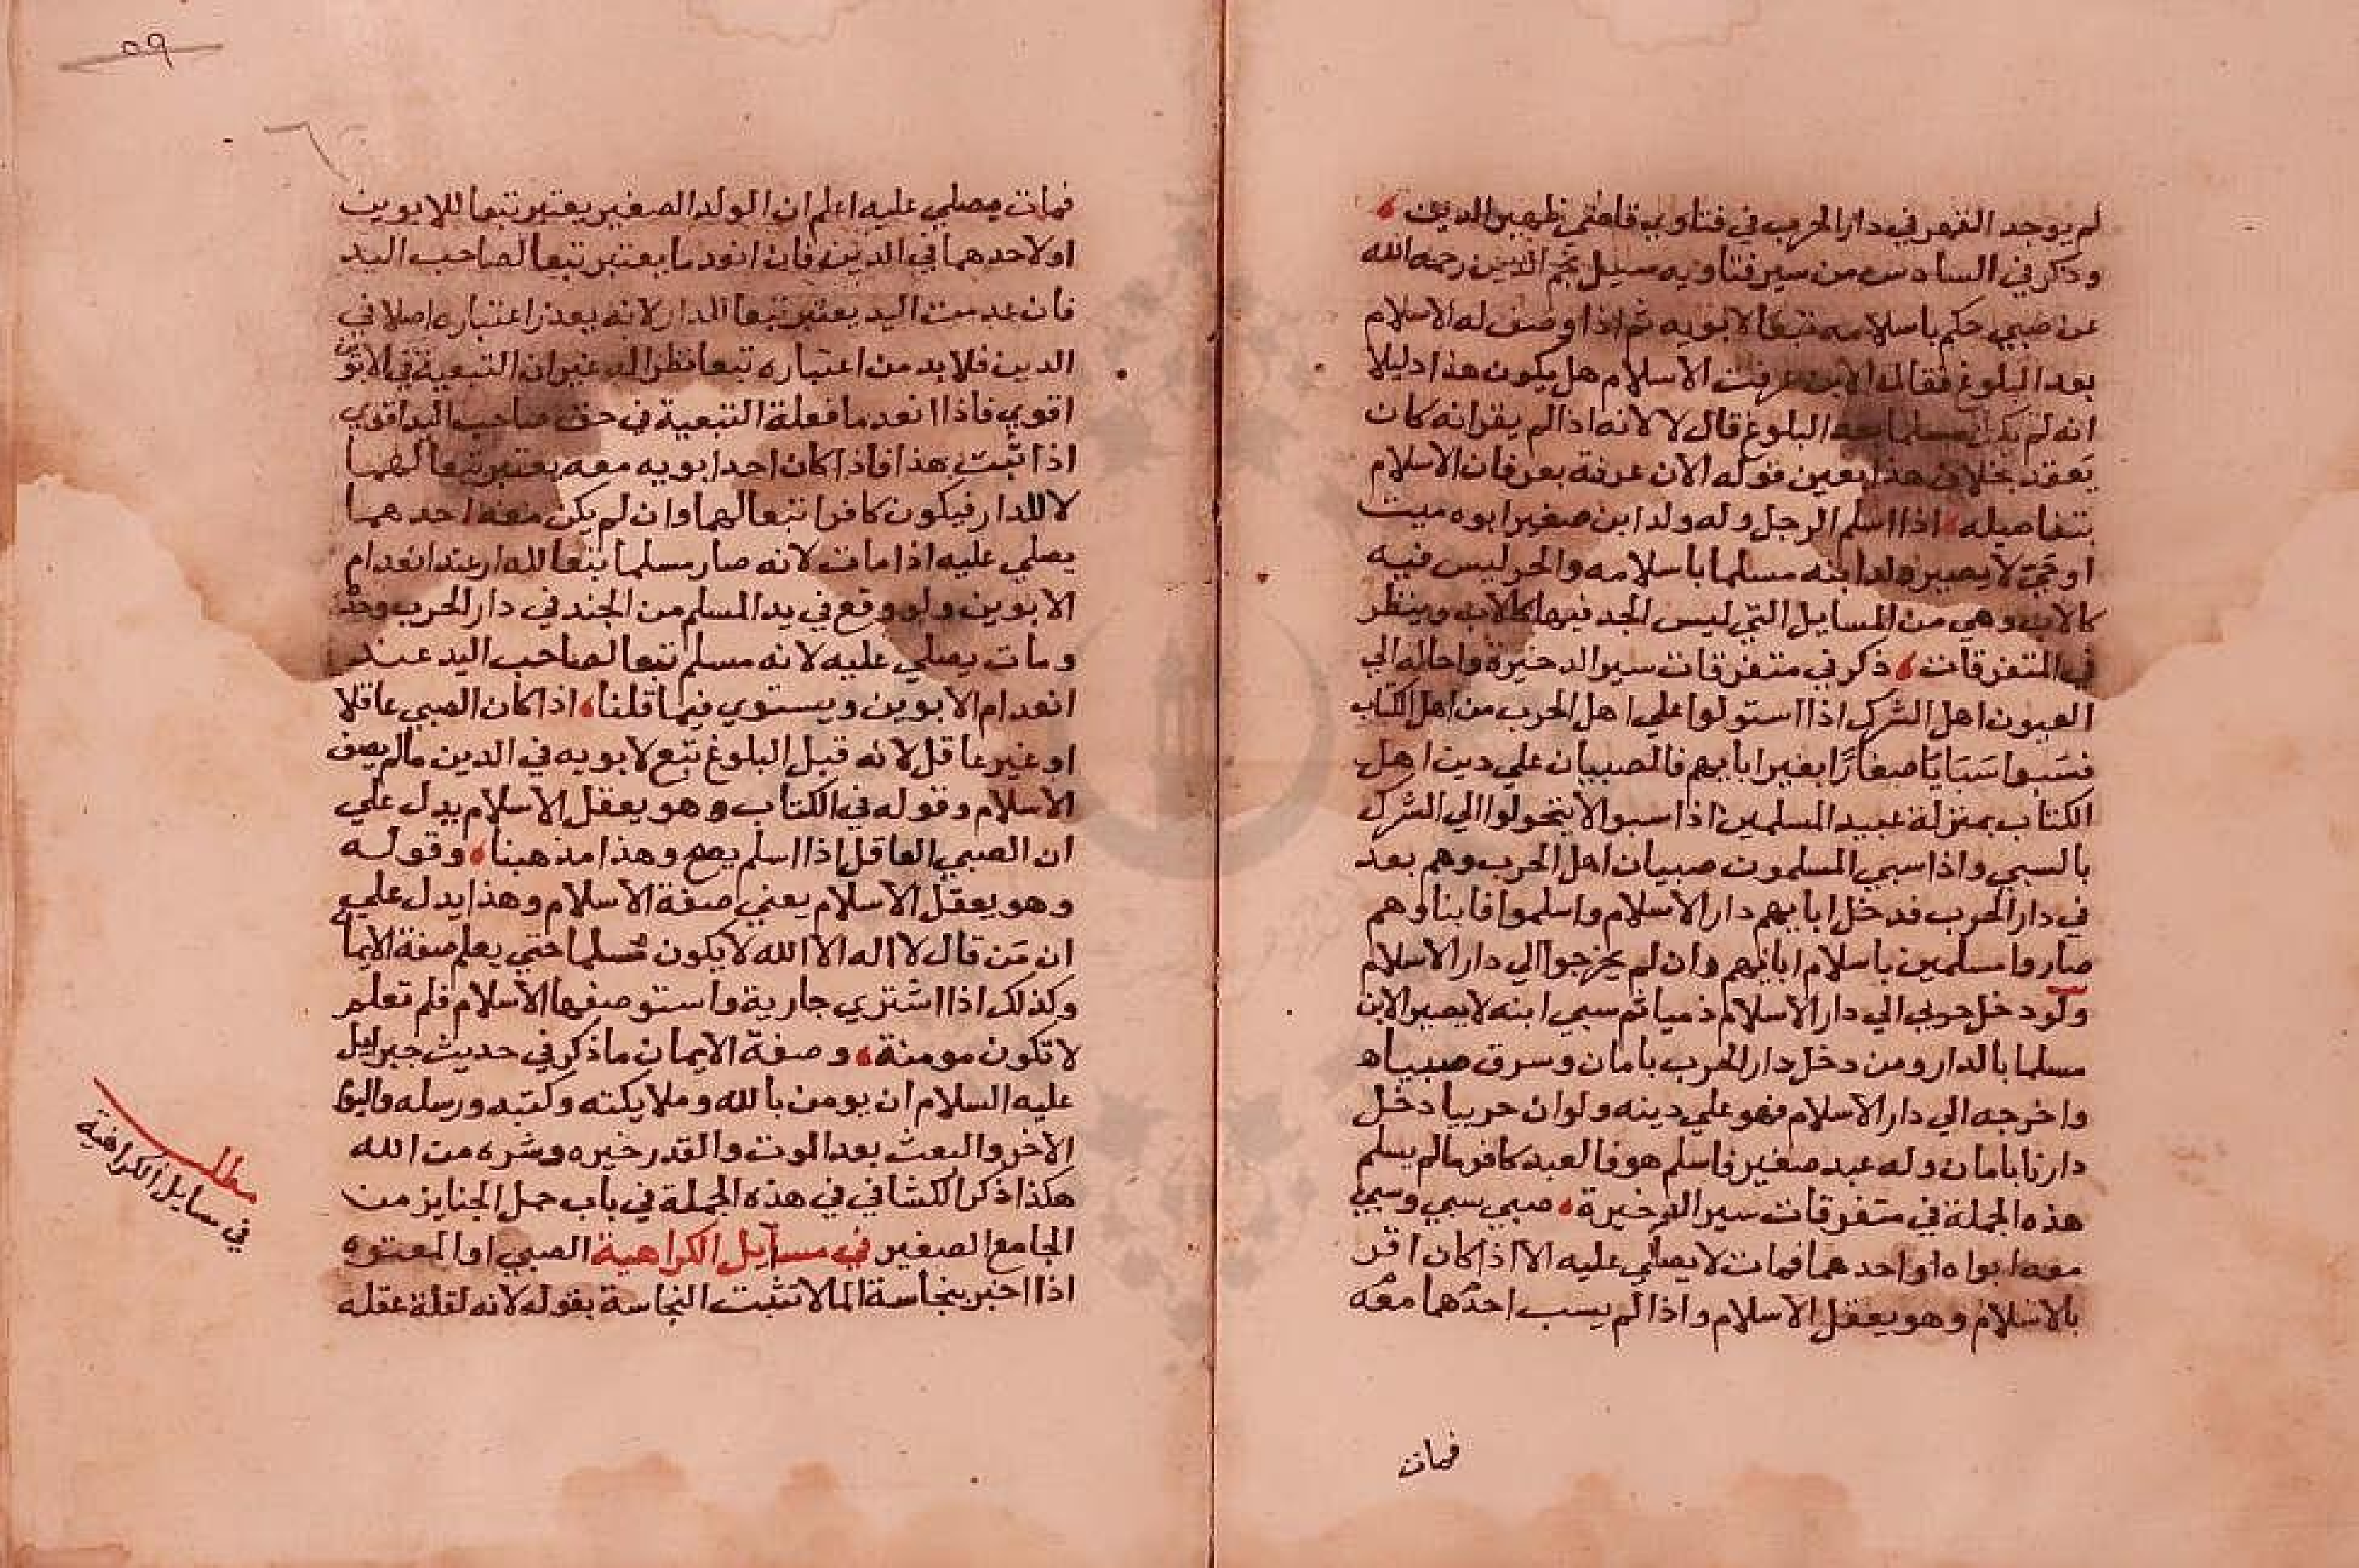 لم يوجد القهر في دار الحرب في فتاوي قاضي ظهير الدين
وذكر في السادس من سير فتاويه سيل نجم الدين رحمه الله
عن صبي حكم باسلامه تبعا لابويه ثم اذا وصف له الاسلام
بعد البلوغ فقال الان عرفت الاسلام هل يكون هذا دليلا
انه لم يكن مسلما البلوغ قال لا لانه اذا لم يقر انه كان
يعتقد بخلاف هذا يعين قوله الان عرفته بعرفان الاسلام
بتفاصيله اذا اسلم الرجل وله ولد ابن صغير ابوه ميت
او حي لا يصير ولد ابنه مسلما باسلامه والجد ليس فيه
كالاب وهي من المسايل التي ليس الجد فيها كالاب وينظر
في المتفرقات ذكر في متفرقات سير الدخيرة واحاله الي
العيون اهل الشرك اذا استولوا علي اهل الحرب من اهل الكتاب
فسَبوا سَبَايَا صغارًا بغير ابايهم فالصبيان علي دين اهل
الكتاب بمنزلة عبيد المسلمين اذا سبوا لا يتحولوا الي الشرك
بالسبي واذا سبي المسلمون صبيان اهل الحرب وهم بعد
في دار الحرب فدخل ابايهم دار الاسلام واسلموا فابناوهم
صاروا مسلمين باسلام ابايهم وان لم يخرجوا الي دار الاسلام
ولو دخل حربي الي دار الاسلام ذميا ثم سبي ابنه لا يصير الابن
مسلما بالدار ومن دخل دار الحرب بامان وسرق صبيا
واخرجه الي دار الاسلام فهو علي دينه ولو ان حربيا دخل
دارنا بامان وله عبد صغير فاسلم هو فالعبد كافر ما لم يسلم
هذه الجملة في متفرقات سير الدخيرة صبي سبي وسبي
معه ابواه او احدهما فمات لا يصلي عليه الا اذا كان اقر
بالاسلام وهو يعقل الاسلام واذا لم يسب احدهما معه
فمات
٥٩
فمات يصلي عليه اعلم ان الولد الصغير يعتبر تبعا للابوين
او لاحدهما في الدين فان انعدما يعتبر تبعا لصاحب اليد
فان عدمت اليد يعتبر تبعا للدار لانه يعذر اعتباره اصلا في
الدين فلا بد من اعتباره تبعا نظرا له غير ان التبعية في الابوين
اقوي فاذا انعدما فعلة التبعية في حق صاحب اليد اقوي
اذا ثبت هذا فاذا كان احد ابويه معه يعتبر تبعا لهما
لا للدار فيكون كافرا تبعا لهما وان لم يكن معه احدهما
يصلي عليه اذا مات لانه صار مسلما تبعا للدار عند انعدام
الابوين ولو وقع في يد المسلم من الجند في دار الحرب وحده
ومات يصلي عليه لانه مسلم تبعا لصاحب اليد عند
انعدام الابوين ويستوي فيما قلنا اذا كان الصبي عاقلا
او غير عاقل لانه قبل البلوغ تبع لابويه في الدين ما لم يصف
الاسلام وقوله في الكتاب وهو يعقل الاسلام يدل علي
ان الصبي العاقل اذا اسلم يصح وهذا مذهبنا وقوله
وهو يعقل الاسلام يعني صفة الاسلام وهذا يدل علي
ان مَن قال لا اله الا الله لا يكون مسلما حتي يعلم صفة الايما
وكذلك اذا اشتري جارية واستوصفها الاسلام فلم تعلم
لا تكون مومنة وصفة الايمان ما ذكر في حديث جبرايل
عليه السلام ان يومن بالله وملايكته وكتبه ورسله واليوم
الاخر والبعث بعد الموت والقدر خيره وشره من الله
هكذا ذكر الكشافي في هذه الجملة في باب حمل الجنايز من
الجامع الصغير في مسايل الكراهية الصبي او المعتوه
اذا اخبر بنجاسة الما لا تثبت النجاسة بقوله لانه لقلة عقله
مطلب
في مسايل الكراهية